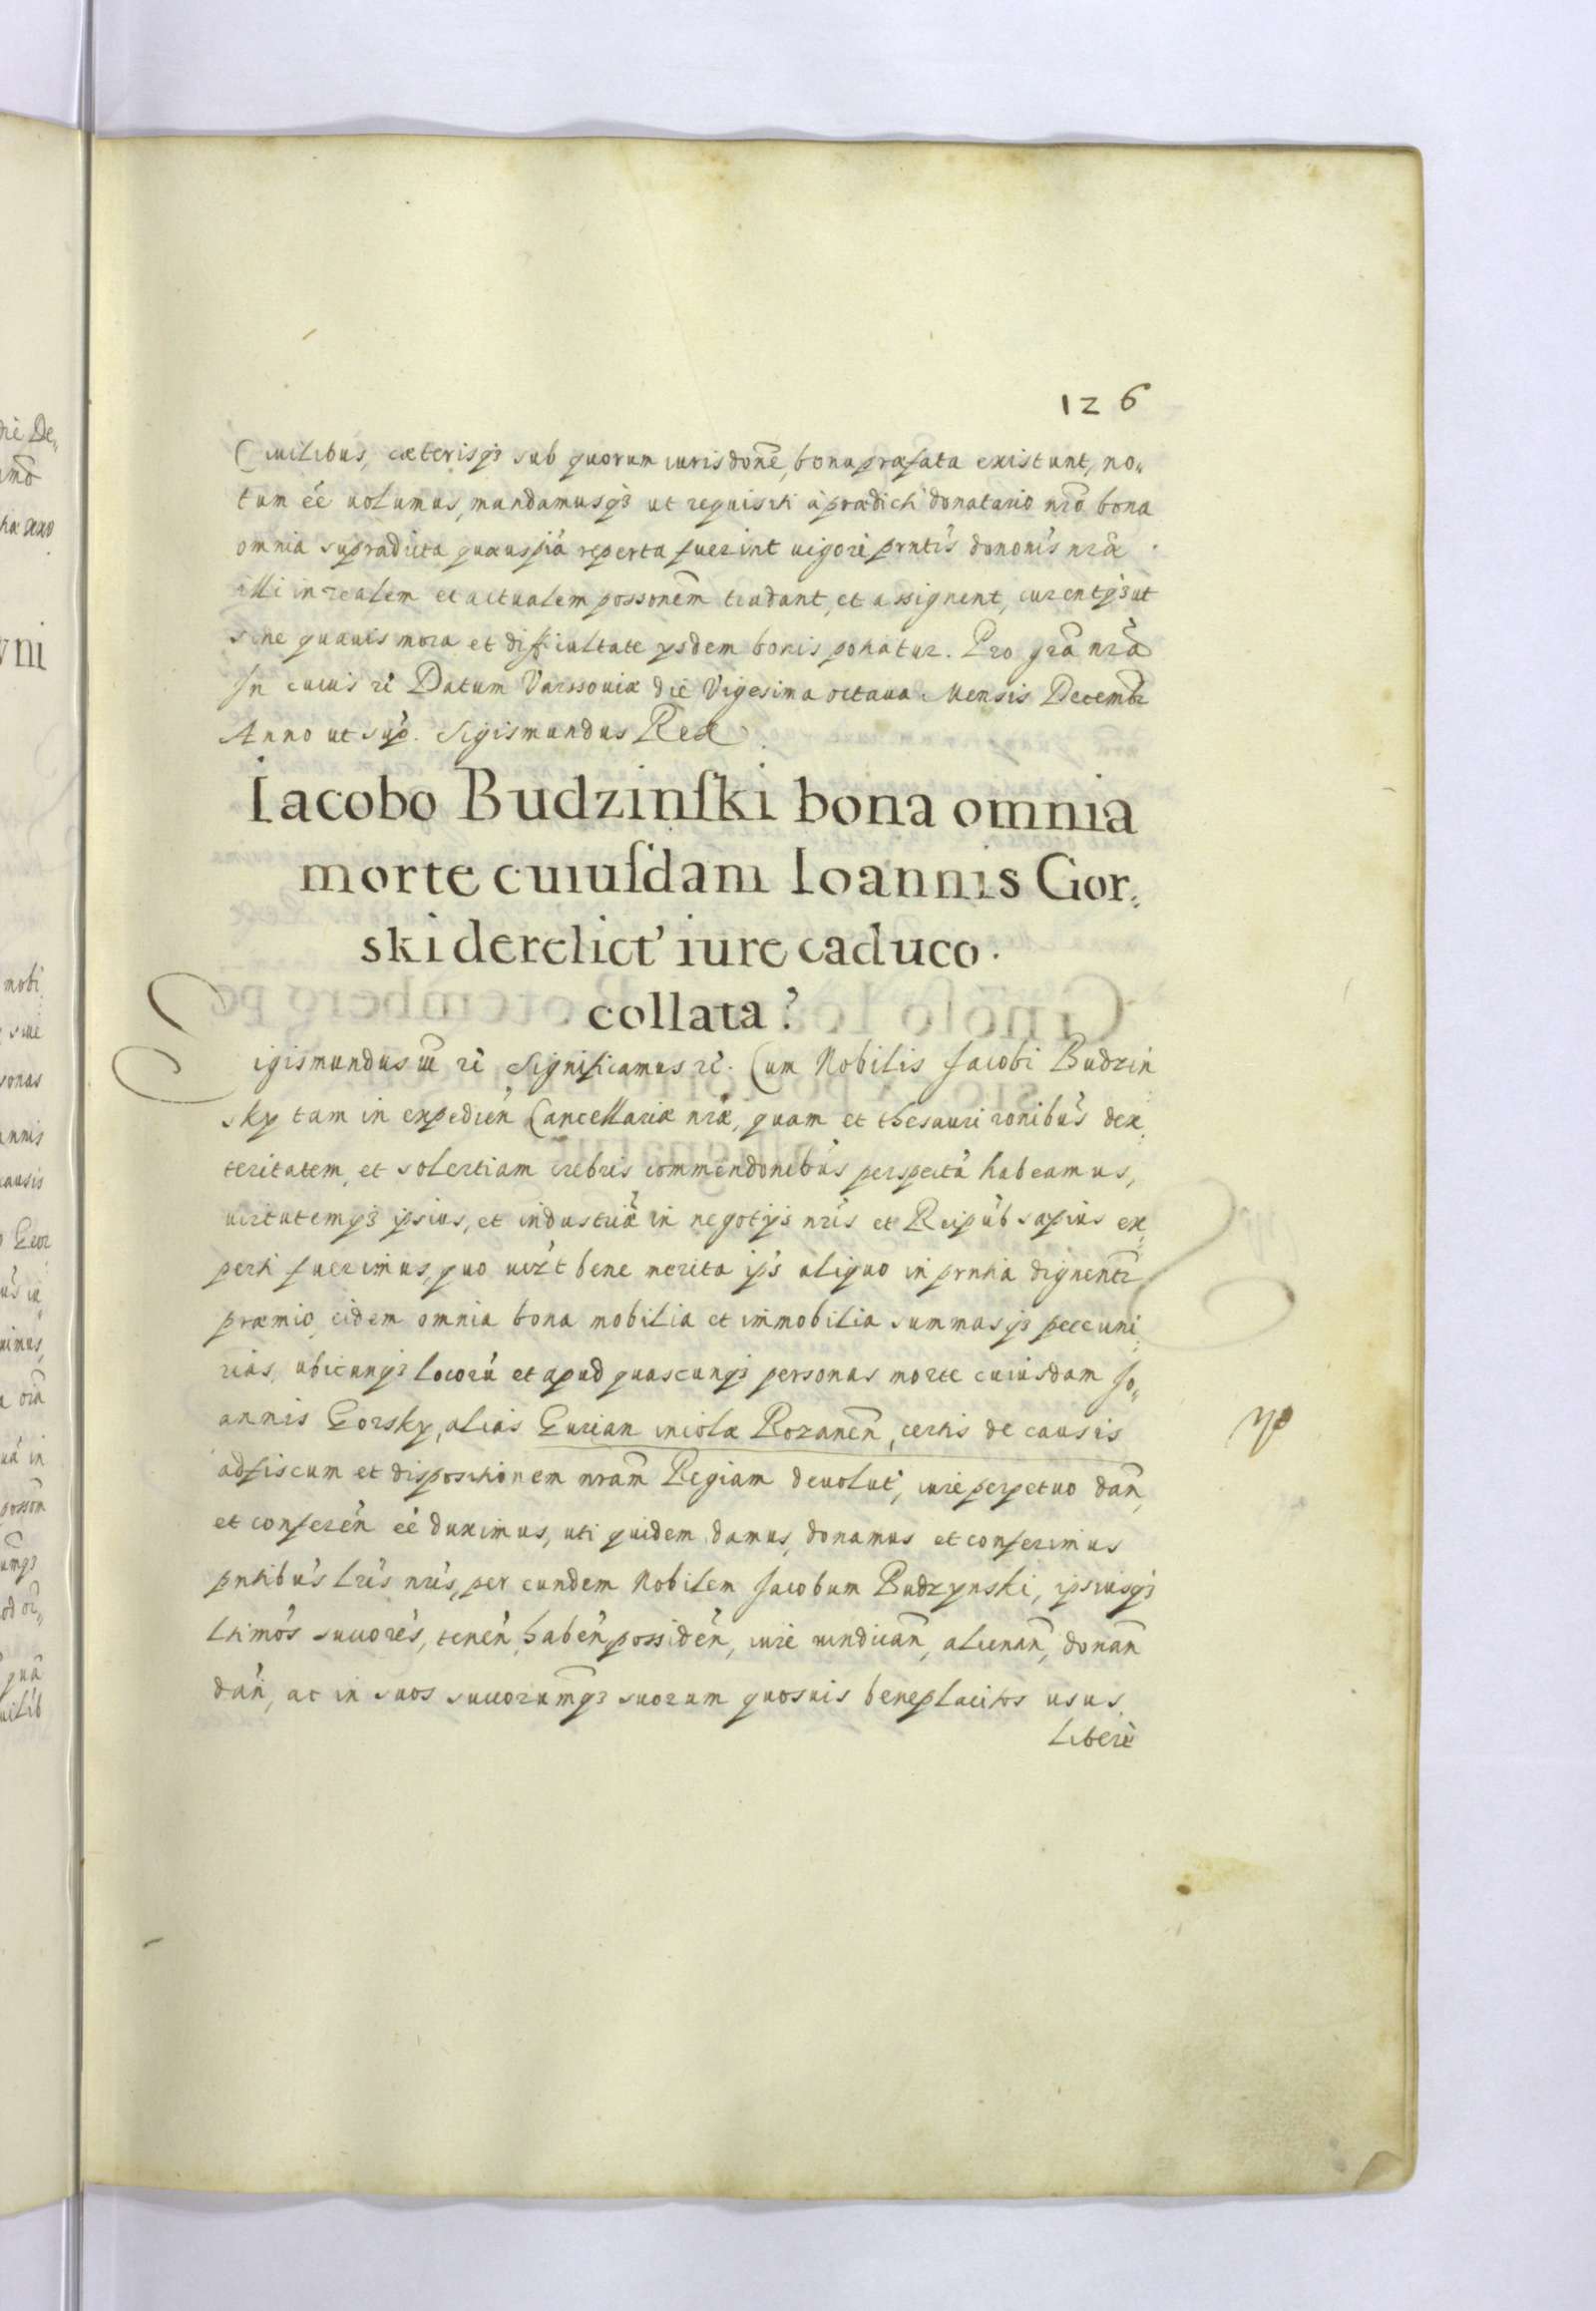 126
Ciuilibus, cæterisqꝫ sub quorum iurisdone, bona præfata existunt, no„
tum ée uolumus, mandamusqꝫ ut requisiti à prædicti donatario nr̃o bona
omnia supradicta quæuspiã reperta fuerint uigore prntis dononis nr̃æ
illi in realem et actualem possonem tradant, et assignent, curentqꝫ ut
sine quauis mora et difficultate ysdem bonis ponatur. Pro gr̃a nr̃a
In cuius rẻ Datum Varssouiæ die Vigesima octaua Mensis Decembr
Anno ut sup. Sigismundus Rex
Iacobo Budzinſki bona omnia
morte cuiuſdam Ioannis Gor„
ski derelict’ iure caduco
collata
Sigismundus rẻ Significamus rẻ. Cum Nobilis Jacobi Budzin
sky tam in expedien Cancellariæ nr̃æ, quam et thesauri ronibus dex„
teritatem, et solertiam crebris commendonibus perspectã habeamus,
uirtutemqꝫ ipsius, et industriã in negotijs nr̃is et Reipub sæpius ex„
perti fuerimus, quo uizt bene merita ips aliquo in prntia dignentr
præmio, eidem omnia bona mobilia et immobilia summasqꝫ peccuni„
rias, ubicunqꝫ locorũ et apud quascunqꝫ personas morte cuiusdam Jo„
annis Gorsky, alias Gurian incolæ Rozanen̄, certis de causis
ad fiscum et dispositionem nram̄ Regiam deuolut’, iure perpetuo dan̄,
et conferen̄ eē duximus, uti quidem damus, donamus et conferimus
pntibus lris nr̃is, per eundem Nobilem Jacobum Budzynski, ipsiusqꝫ
ltimos succores, tenen̄, haben̄, possiden̄, iure uendican̄, alienan̄, donan̄
dan̄, ac in suos succorum̄qꝫ suorum quosuis beneplacitos usus
Liberè